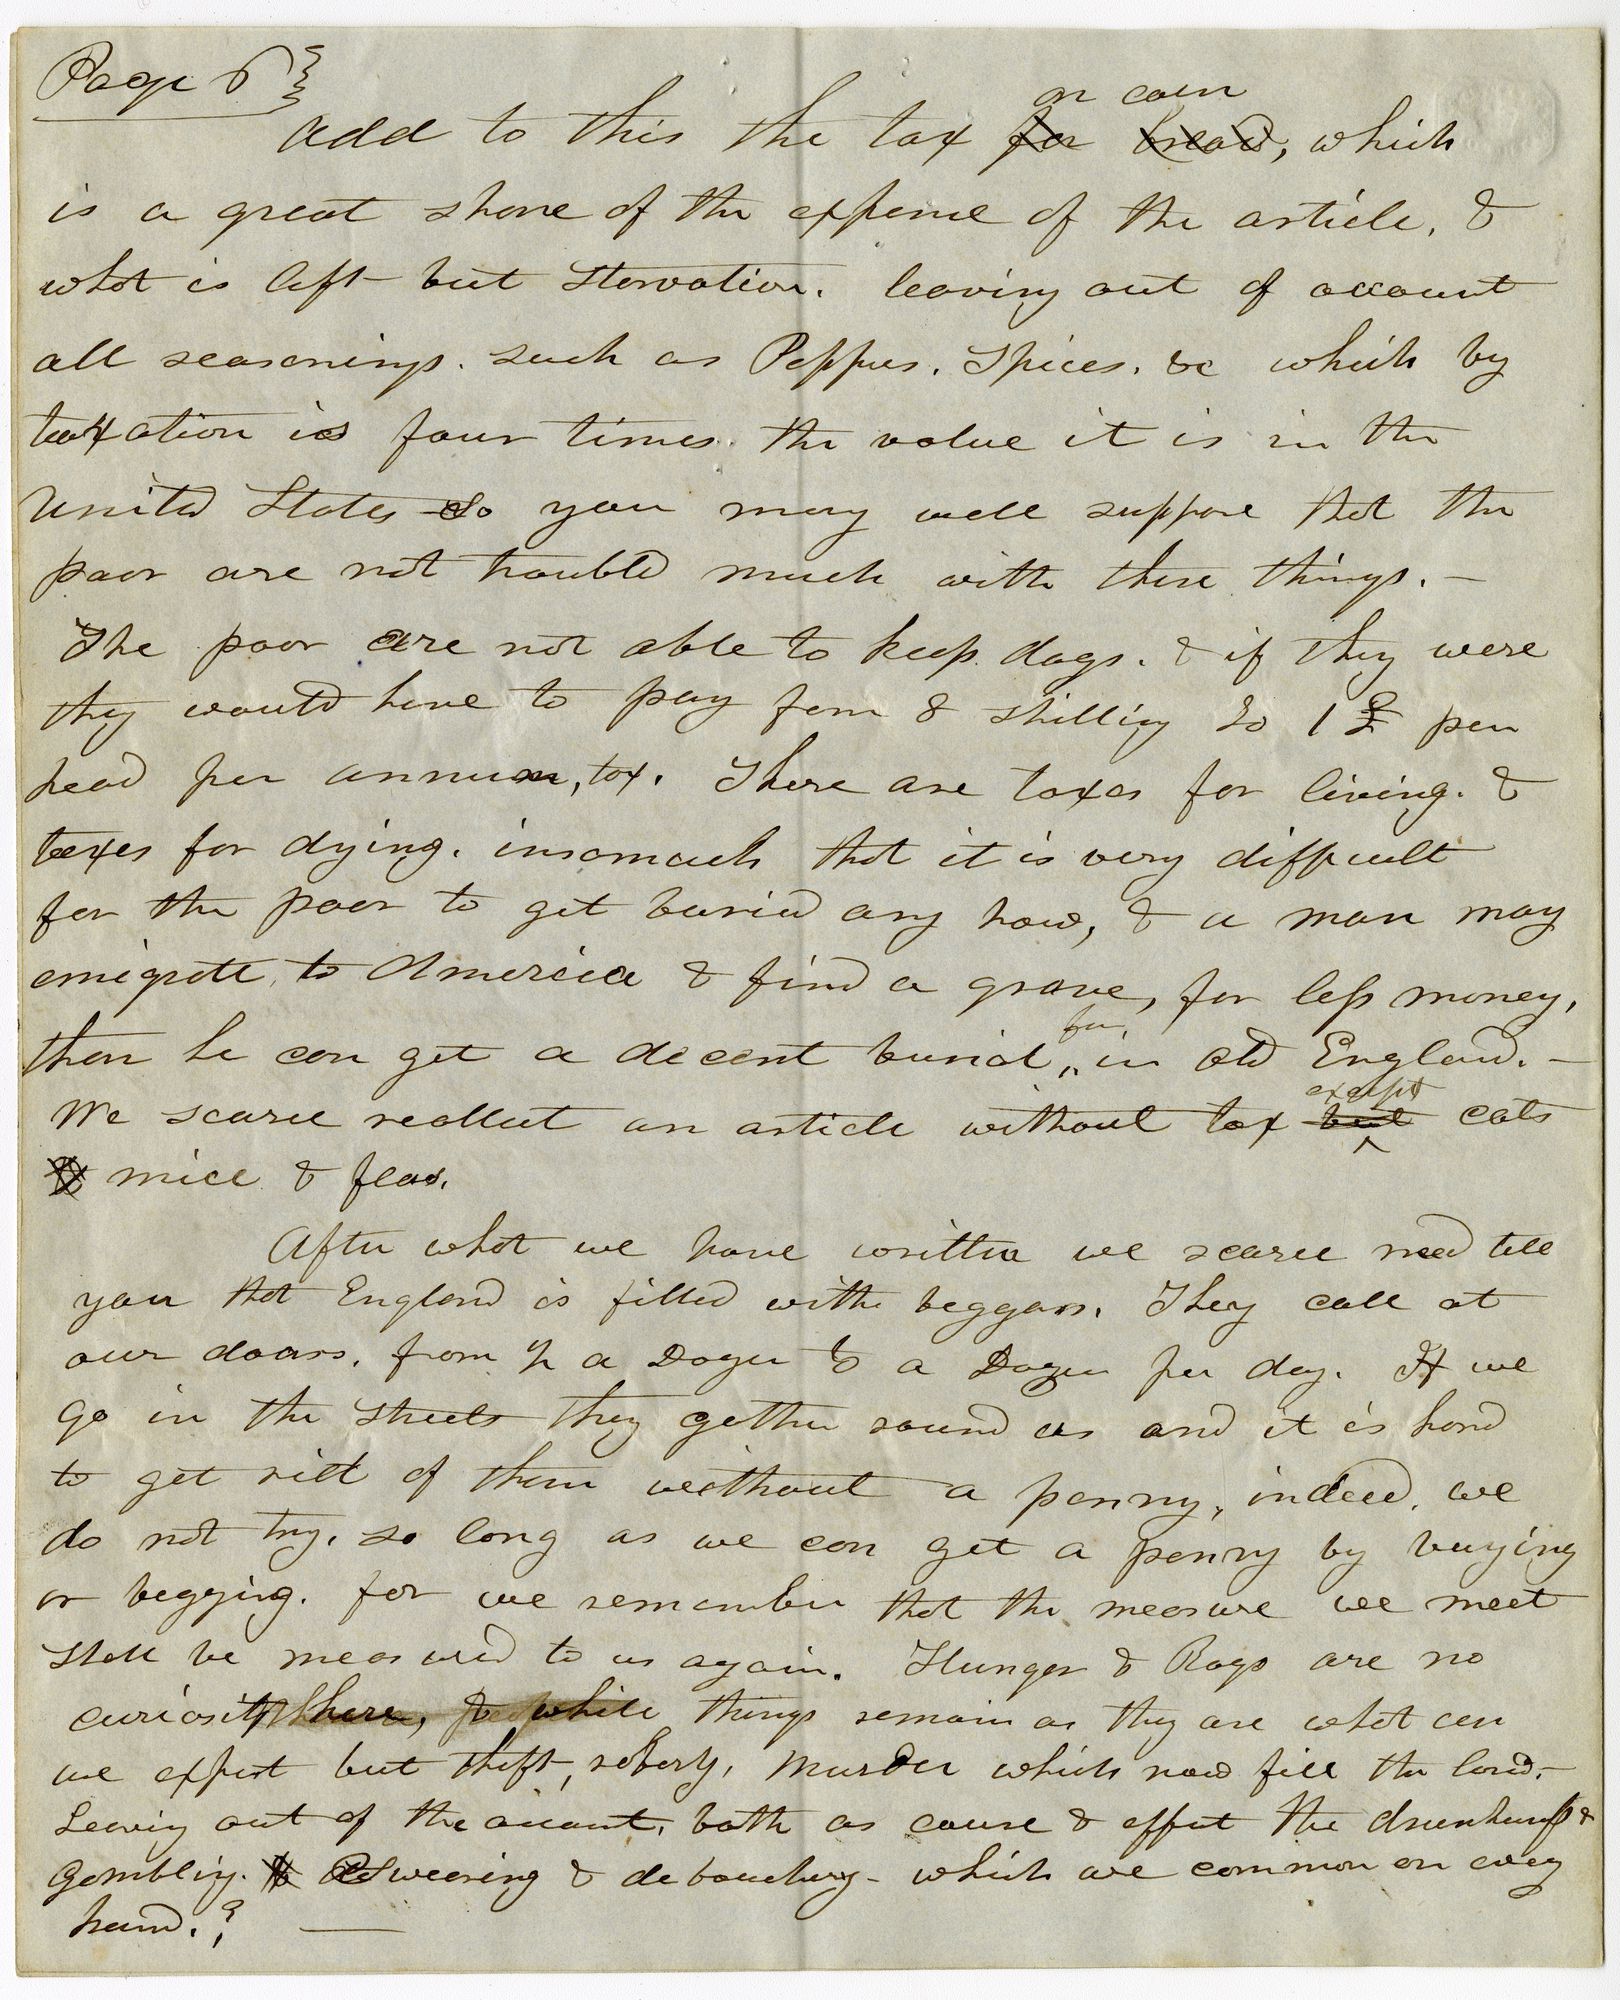 Page 6 }
on corn
Add to this the tax for bread, which
is a great share of the expense of the article, &
what is left but starvation. leaving out of account
all seasonings. such as Peppers. Spices. &c which by
taxation is four times the value it is in the
United States So you may well suppose that the
poor are not troubled much with these things. —
The poor are not able to keep dogs. & if they were
they would have to pay from 8 shilling to 1 £ per
head per annum, tax. There are taxes for living. &
taxes for dying. insomuch that it is very difficult
for the poor to get buried any how, & a man may
emigrate to America & find a grave, for less money,
than he can get a decent burial in old England. —
except
We scarce recollect an article without tax but cats
& mice & fleas.
After what we have written we scarce need tell
you that England is filled with beggars. They call at
our doors. from ½ a Dozen to a Dozen per day. If we
go in the streets they gather round us and it is hard
to get rid of them without a penny, indeed, we
do not try. so long as we can get a penny by buying
or begging. for we remember that the measure we meet
shall be measured to us again. Hunger & Rags are no
curiosity here, & while things remain as they are what can
we expect but theft, robery, murder which now fill the land. —
Leaving out of the account, both as cause & effect the drunkeness &
Gambling. Sweering & debauchery - which are common on every
hand.? —